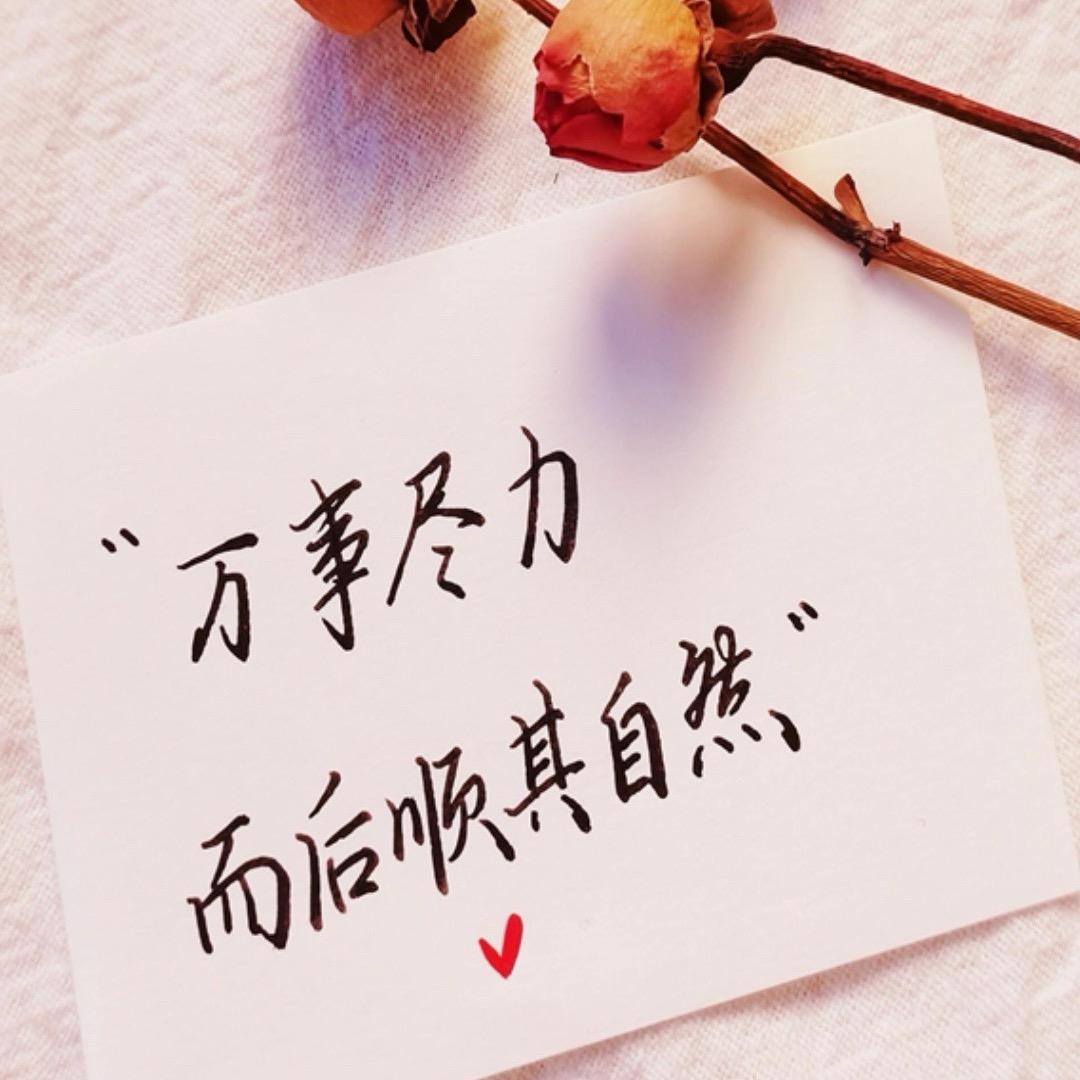 “万事尽力
而后顺其自然”